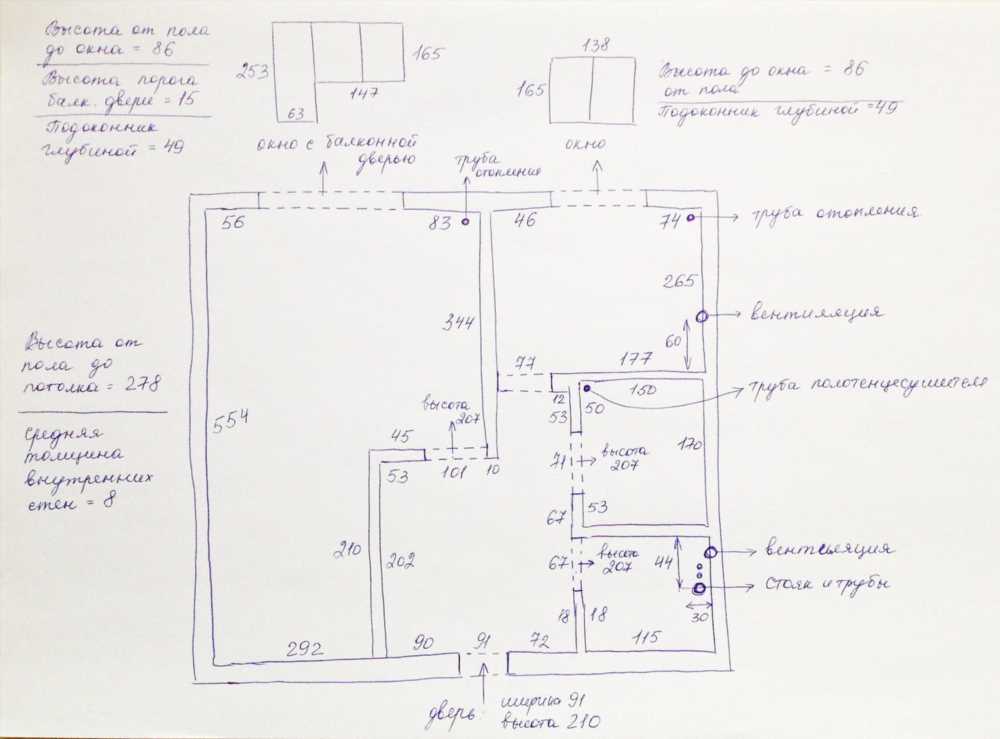 Высота от пола
до окна = 86
Высота порога
балк. двери = 15
Подоконник
глубиной = 49
253
165
147
63
окно с балконной
дверью
138
165
окно
Высота до окна = 86
от пола
Подоконник глубиной = 49
труба
отопления
56
83
46
74
труба отопления
265
вентиляция
344
60
77
177
Высота от
пола до
потолка = 278
средняя
толщина
внутренних
стен = 8
554
12
150
труба полотенцесушителя
53
50
высота
207
45
53
101
10
71
высота
207
170
67
53
210
202
67
высота
207
44
вентиляция
стояк и трубы
30
18
18
292
90
91
72
115
дверь:
ширина 91
высота 210